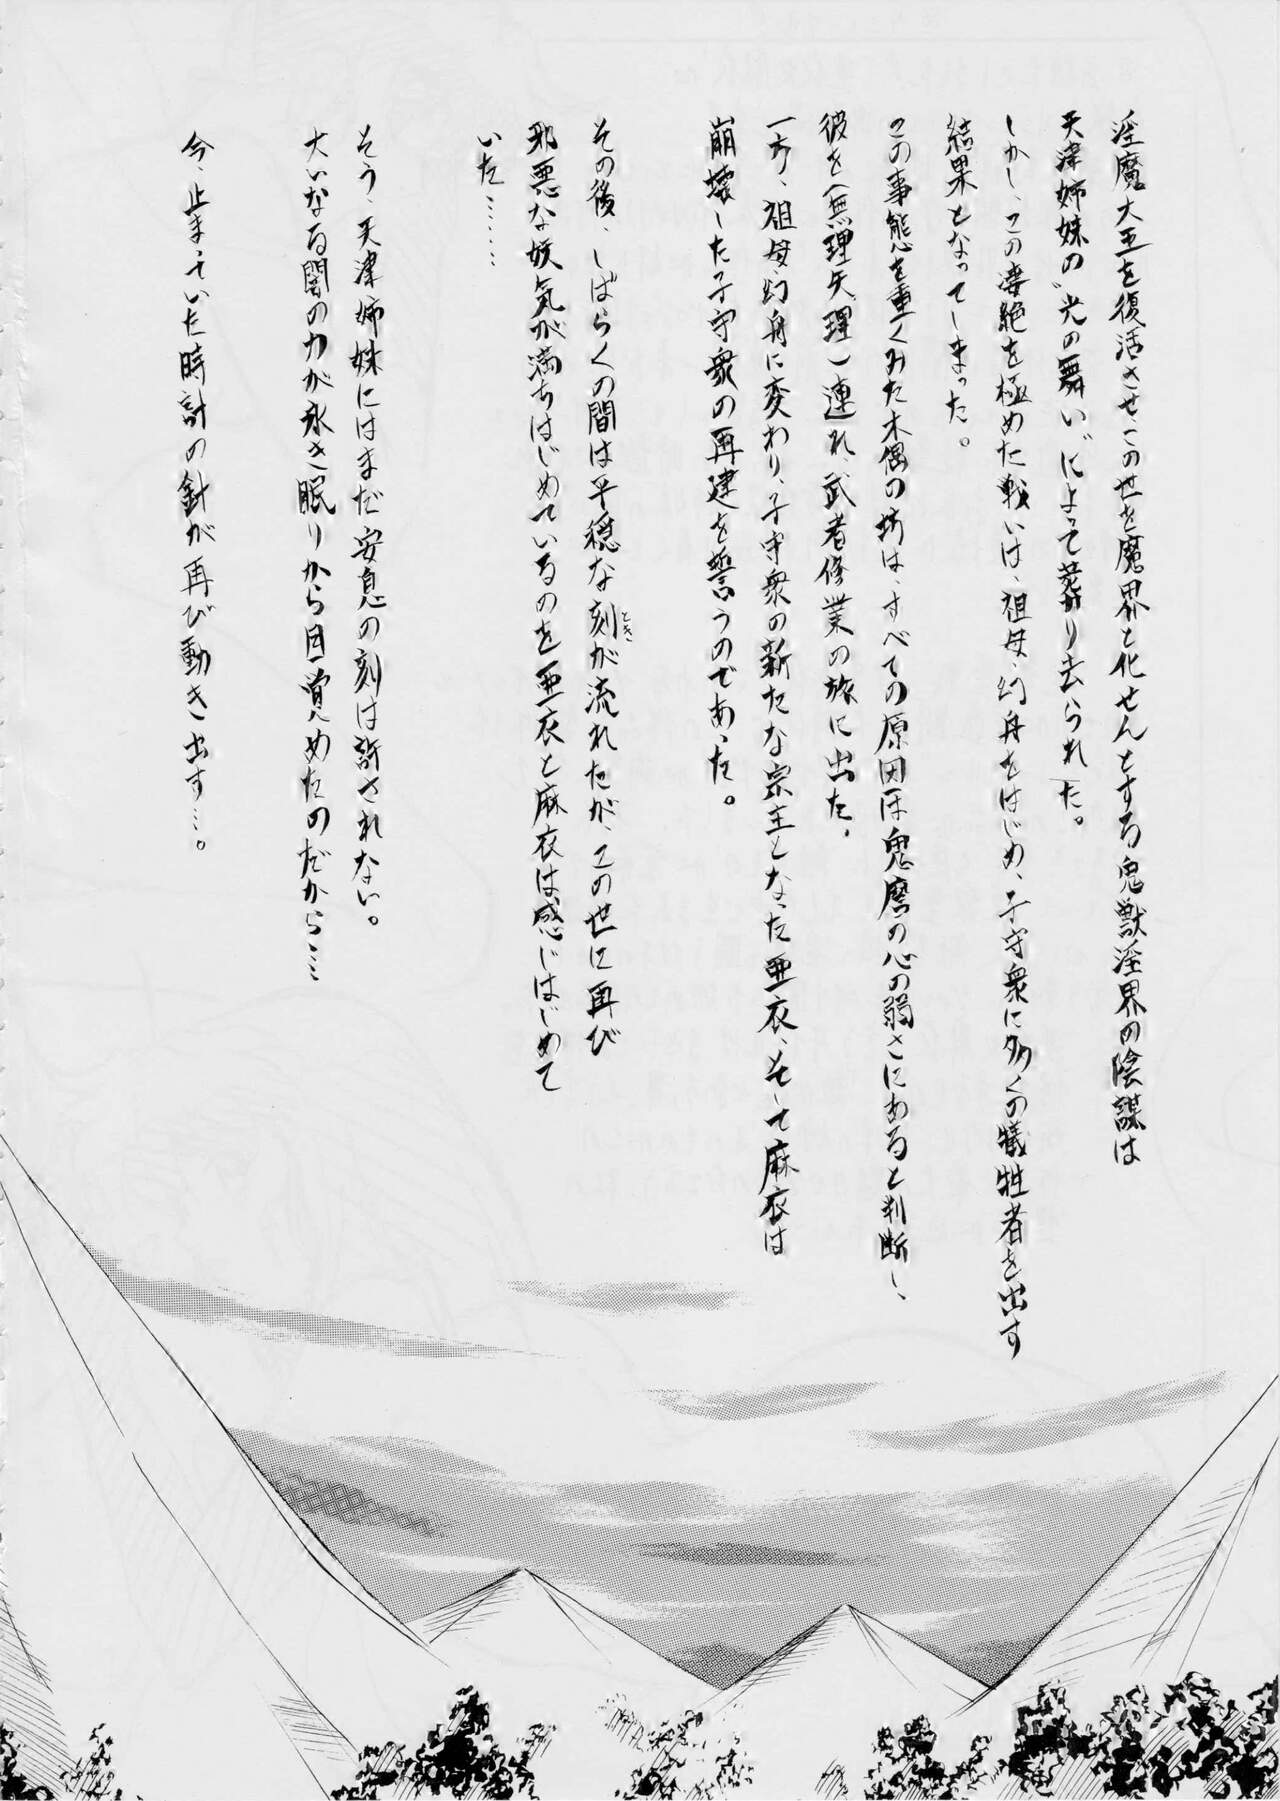 淫魔大王を復活させ、この世を魔界と化せんとする鬼獣淫界の陰謀は
天津姉妹の〝光の舞い〟によって葬り去られた。
しかし、この凄絶を極めた戦いは、祖母・幻舟をはじめ、子守衆に多くの犠牲者を出す
結果となってしまった。
この事態を重くみた木偶の坊は、すべての原因は鬼麿の心の弱さにあると判断し、
彼を(無理矢理)連れ、武者修業の旅に出た。
一方、祖母・幻舟に変わり、子守衆の新たな宗主となった亜衣、そして麻衣は
崩壊した子守衆の再建を誓うのであった。
その後、しばらくの間は平穏な刻(とき)が流れたが、この世に再び
邪悪な妖気が満ちはじめているのを亜衣と麻衣は感じはじめて
いた……
そう、天津姉妹にはまだ安息の刻は許されない。
大いなる闇の力が永き眠りから目覚めたのだから……
今、止まっていた時計の針が再び動き出す…。